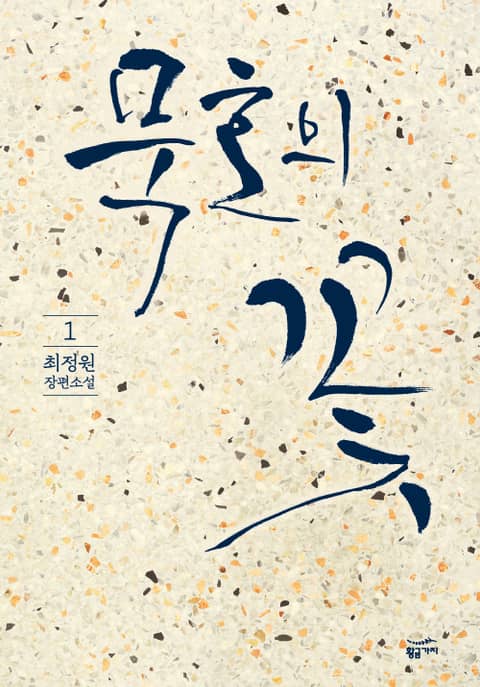 묵호의
꽃
1
최정원
장편소설
황금가지